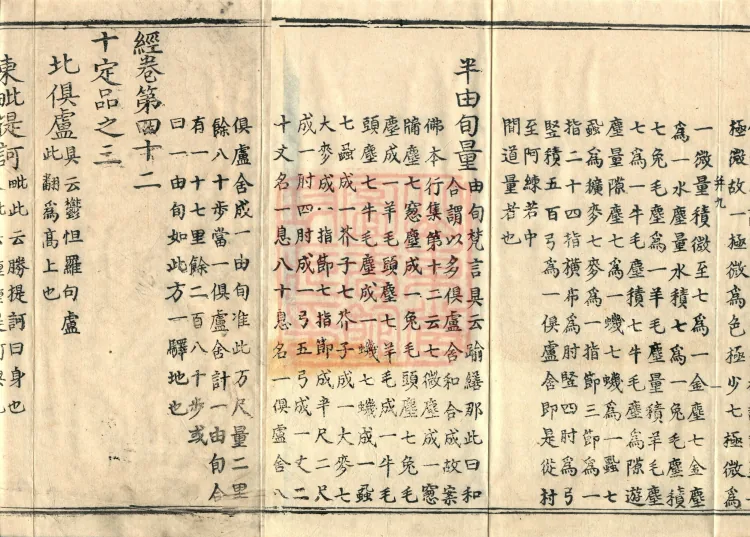 極微故一極微爲色極少七極微爲
一微量積微至七爲一金塵七金塵
爲一水塵量水積七爲一兔毛塵積
七兔毛塵爲一羊毛塵量積羊毛塵
七爲一牛毛塵積七牛毛塵爲隙遊
塵量隙塵七爲一蟣七蟣爲一蝨七
蝨爲穬麥七麥爲一指節三節爲一
指二十四指橫布爲肘竪四肘爲弓
竪積五百弓爲一俱盧舍即是從村
至阿練若中
間道量若也
半由旬量由旬梵言具云踰繕那此曰和
合謂以多俱盧舍和合成故案
佛本行集第十二云七微塵成一窻
牗塵七窻塵成一兔毛頭塵七兔毛
塵成一羊毛頭塵七羊毛成一牛毛
頭塵七牛毛塵成一蟣七蟣成一蝨
七蝨成一芥子七芥子成一大麥七
大麥成一指節七指節成半尺二尺
成一肘四肘成一弓五弓成一丈二
十丈名一息八十息名一俱盧舍八
俱盧舍成一由旬准此方尺量二里
餘八十步當一俱盧舍計一由旬合
有一十七里餘二百八十步或
曰一由旬如此方一驛地也
經卷第四十二
十定品之三
北俱盧具云鬱怛羅句盧
此翻爲高上也
東毗提訶毗此云勝提訶曰身也